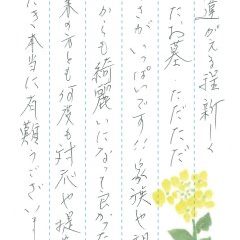 違がえる程新しく
たお墓 ただただ
さがいっぱいです!! 家族や
からも綺麗いになって良かった
の方とも何度も対応や提
き本当に有難うございま